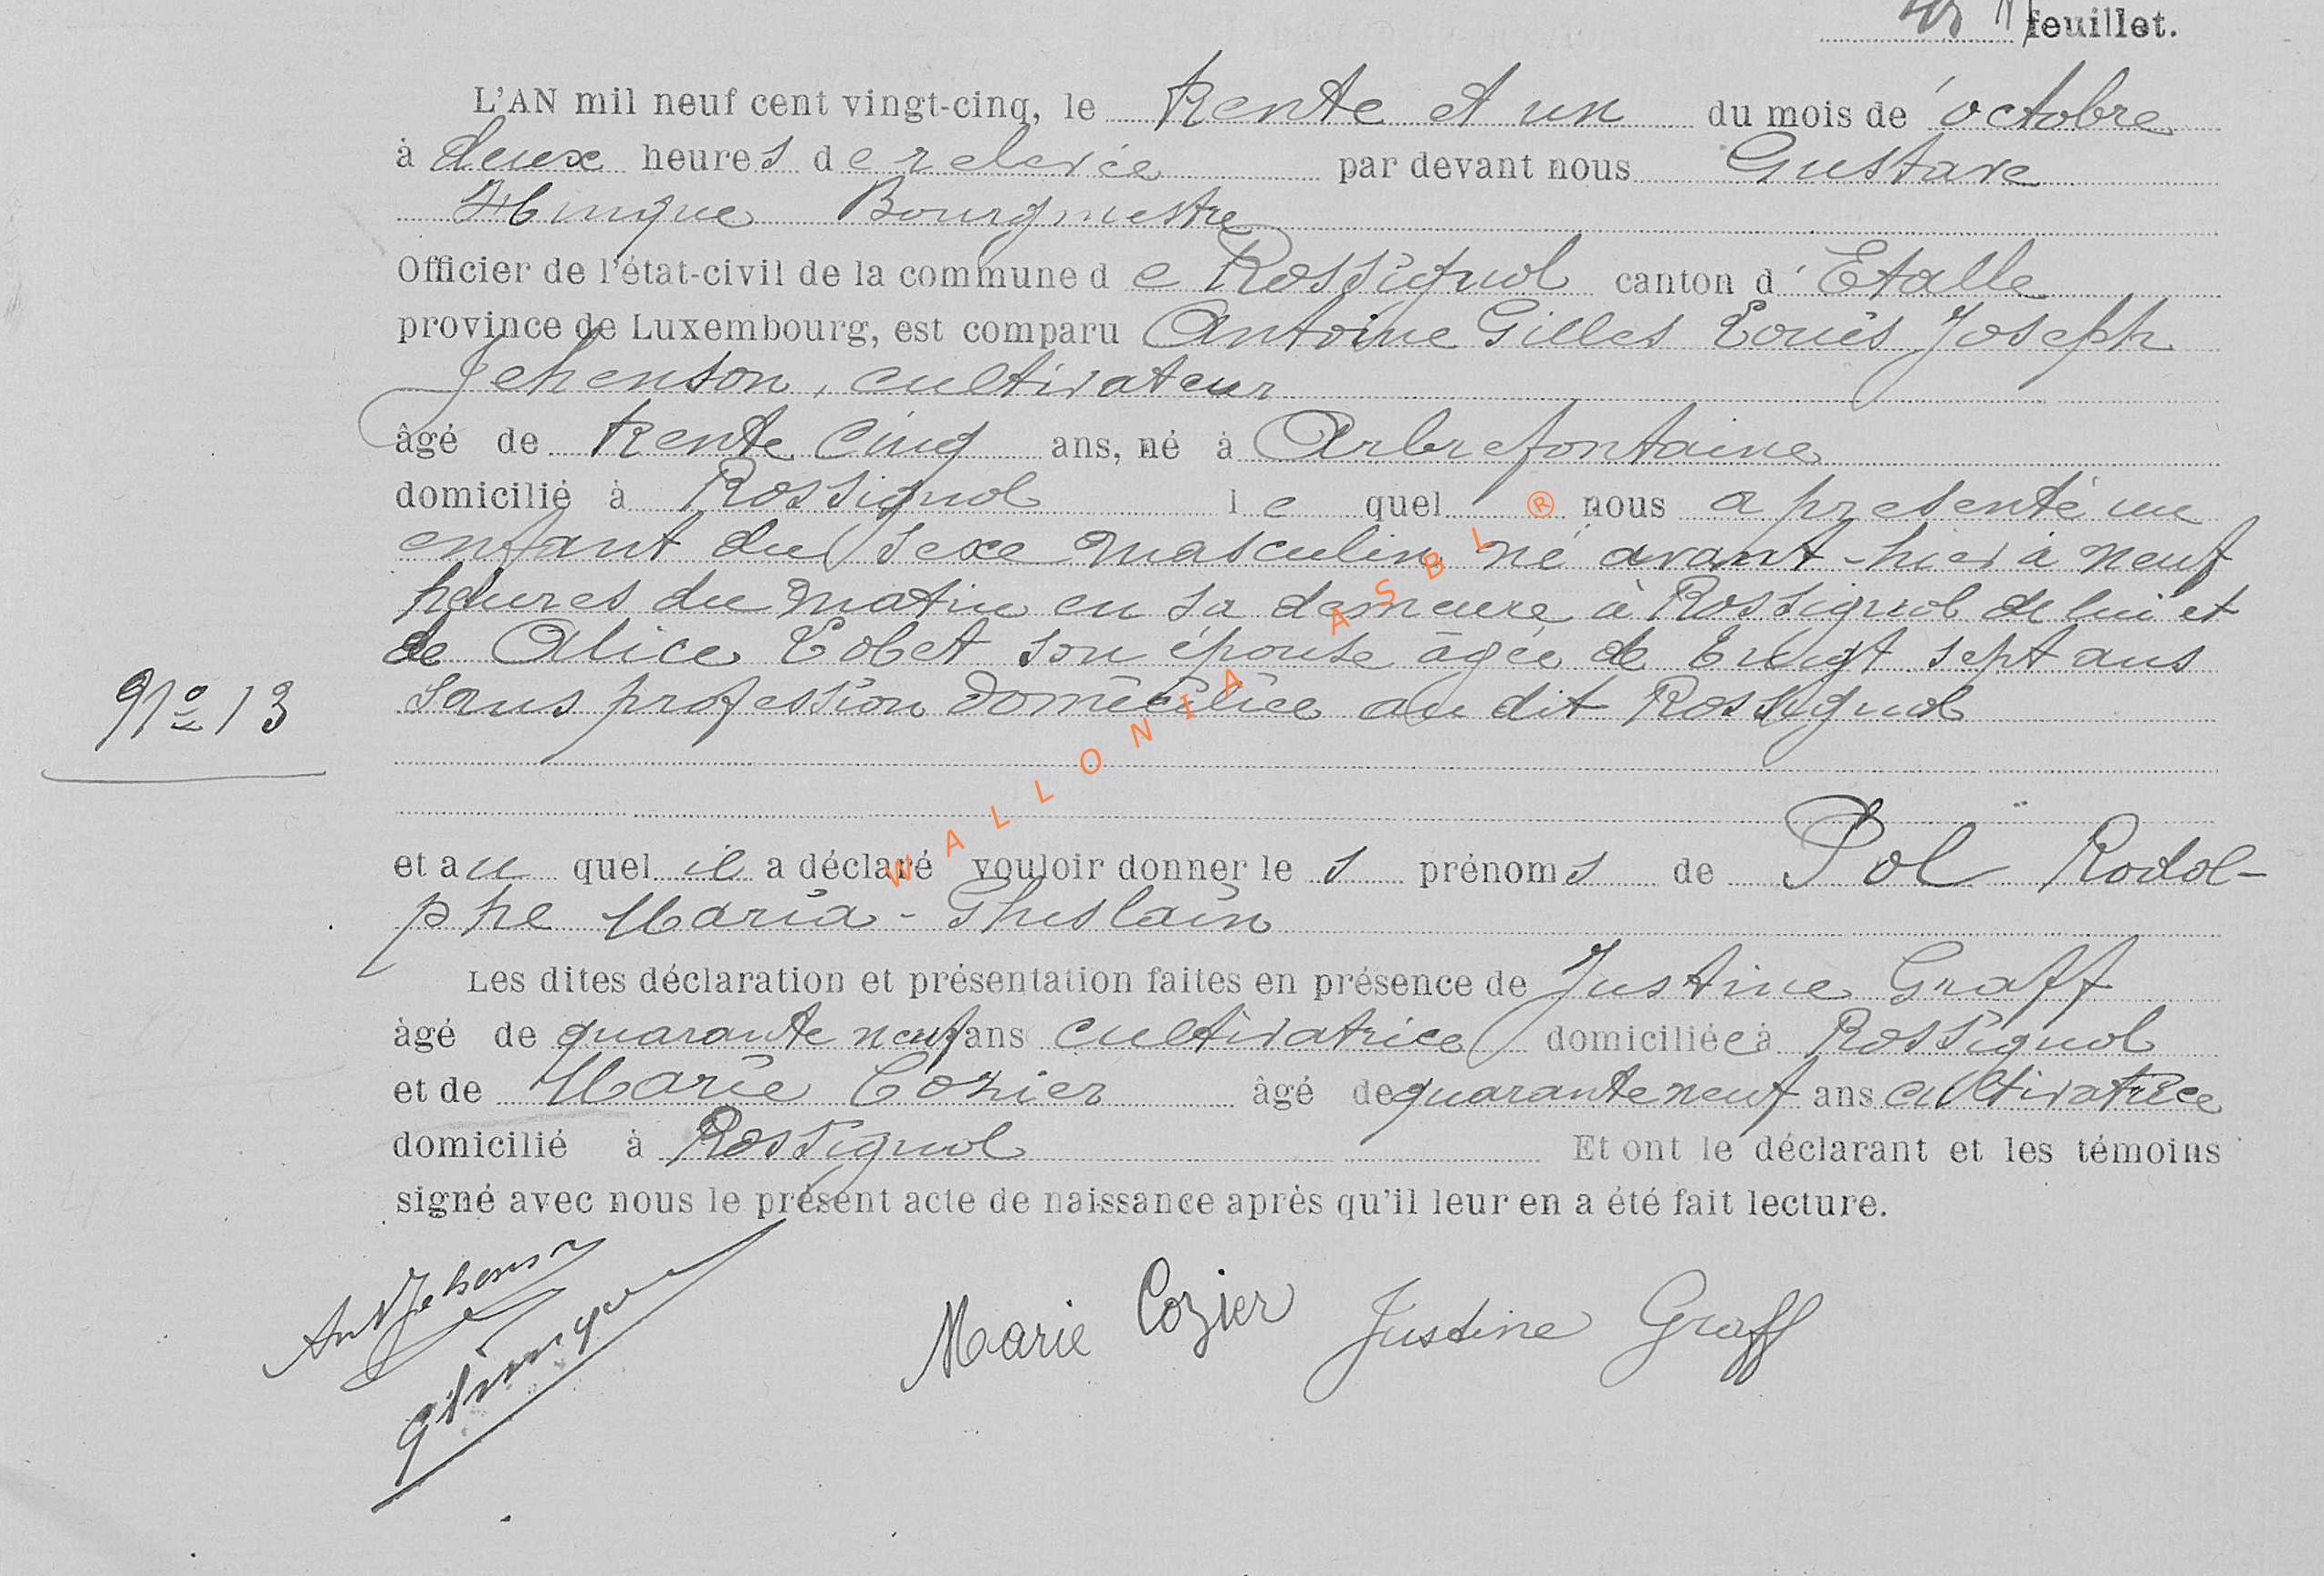 feuillet.
L'AN mil neuf cent vingt-cinq, le trente et un du mois de octobre
à deux heures de relevée par devant nous Gustave
Hinque Bourgmestre
Officier de l'état-civil de la commune de Rossignol canton d'Etalle
province de Luxembourg, est comparu Antoine Gilles Louis Joseph
Jehenson, cultivateur
âgé de trente cinq ans, né à Arbrefontaine
domicilié à Rossignol lequel nous a presenté un
enfant du sexe masculin né avant-hier à neuf
heures du matin en sa demeure à Rossignol de lui et
de Alice Lobet son épouse âgée de vingt sept ans
N° 13 sans profession domiciliée au dit Rossignol
et au quel il a déclaré vouloir donner les prénoms de Pol Rodol-
phe Maria-Ghislain
Les dites déclaration et présentation faites en présence de Justine Graff
âgé de quarante neuf ans cultivatrice domiciliée à Rossignol
et de Marie Cozier âgé de quarante neuf ans cultivatrice
domicilié à Rossignol Et ont le déclarant et les témoins
signé avec nous le présent acte de naissance après qu'il leur en a été fait lecture.
Ant Jehenson
Marie Cozier Justine Graff
WALLONIA ASBL ®